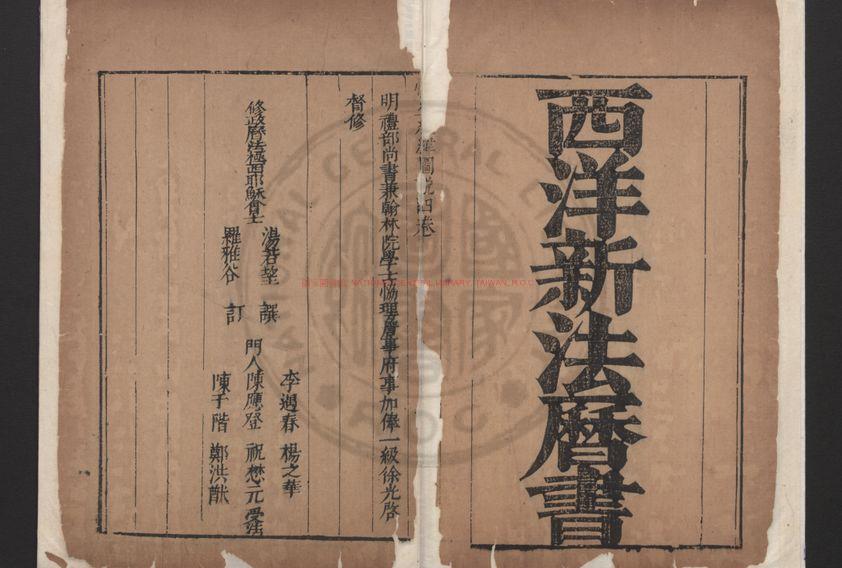 西洋新法曆書
圖說四卷
明禮部尚書兼翰林院學士協理詹事府事加俸一級徐光啓
督修
修政曆法極西耶穌會士
湯若望 撰
羅雅谷 訂
李遇春 楊之華
門人陳應登 祝懋元 受法
陳于階 鄭洪猷
NATIONAL CENTRAL LIBRARY, TAIWAN, R.O.C.